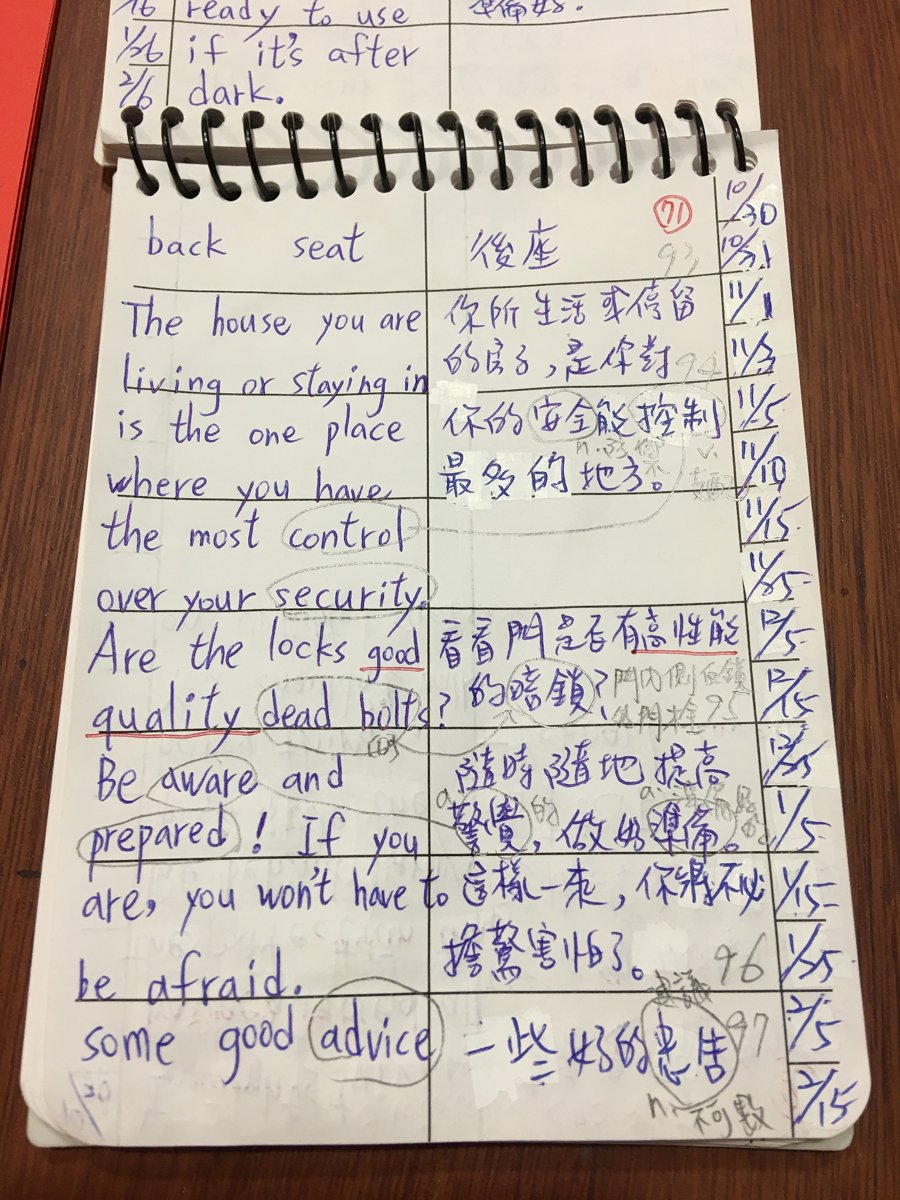 16 ready to use
準備好。
1/26 if it's after
2/6 dark.
71
10/30
back seat
後座
93
10/31
The house you are
你所生活或停留
11/1
living or staying in
的房子,是你對
94
11/3
is the one place
你的安全能控制
11/5
where you have
最多的地方。
n.
v.
11/10
the most control
11/15
over your security.
11/25
Are the locks good
看看門是否有高性能
12/5
quality dead bolts?
的暗鎖?
門內側的鎖
門栓 95
12/15
Be aware and
隨時隨地提高
12/25
prepared! If you
警覺,做好準備。
a.
的
a.
1/5
are, you won't have to
這樣一來,你將不必
1/15
be afraid.
擔驚害怕了。
96
1/25
some good advice
一些好的忠告
建議
97
2/5
n. 不可數
2/15